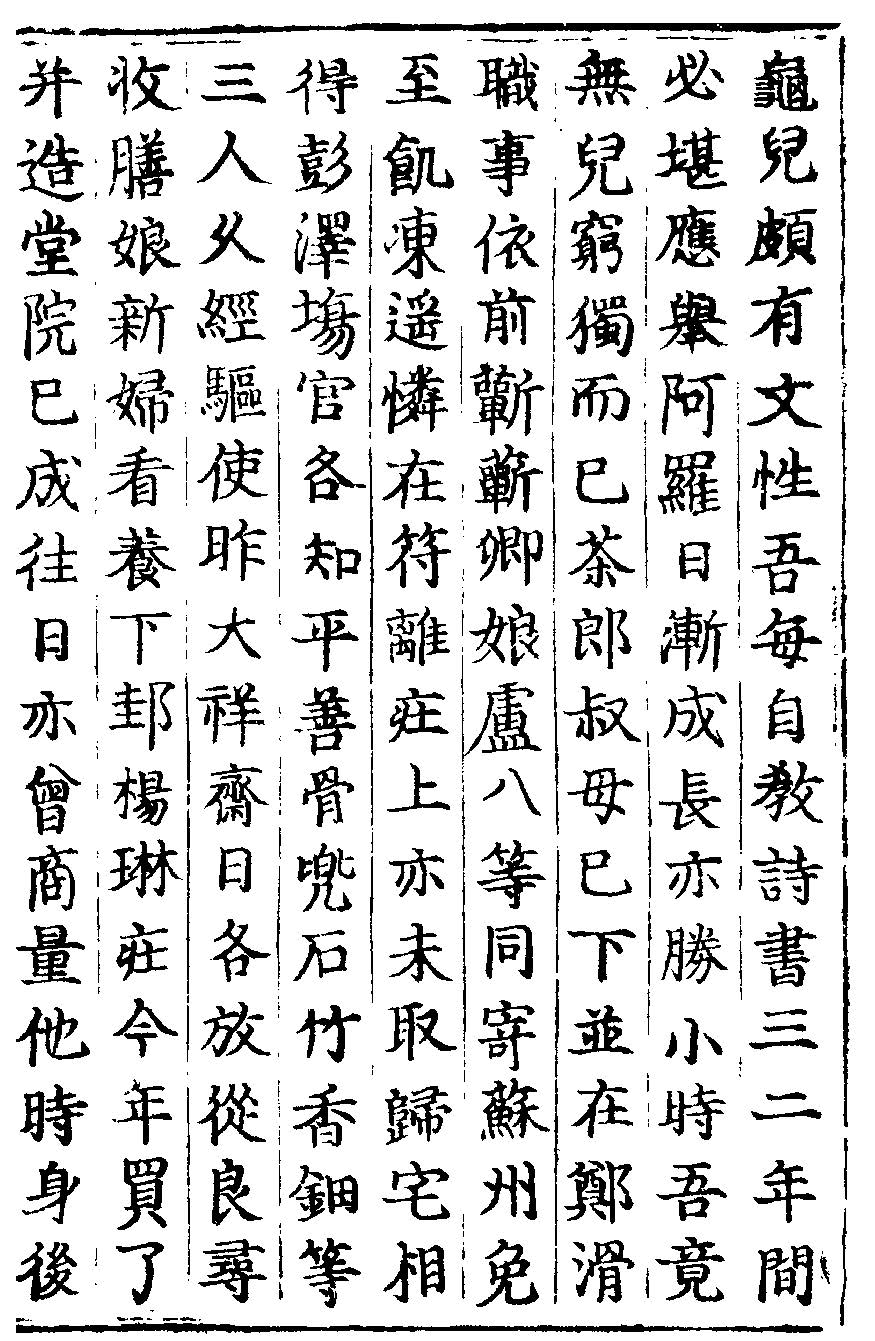 龜兒頗有文性吾每自教詩書三二年間
必堪應舉阿羅日漸成長亦勝小時吾竟
無兒窮獨而巳茶郎叔母巳下並在鄭滑
職事依前蘄蘄卿娘盧八等同寄蘇州免
至飢凍遥憐在符離莊上亦未取歸宅相
得彭澤塲官各知平善骨兠石竹香鈿等
三人久經驅使昨大祥齋日各放從良尋
收膳娘新婦看養下邽楊琳莊今年買了
并造堂院巳成往日亦曾商量他時身後